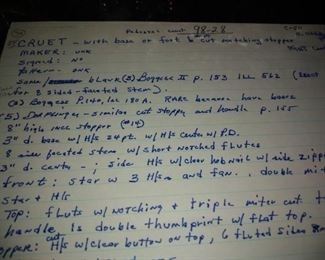 98-28
CRUET - with base or foot & cut matching stopper
MAKER: UNK
Signed: NO
PATTERN: UNK
Same blank (2) Boggess II p. 153 ILL 562 (Except
for 8 sided-faceted stem).
(2) Boggess P. 140, ILL 180 A. RARE because have bases
(5) DORFLINGER - similar cut stoppy and handle p. 155
8" high inc stopper (#14)
3" d. base w/ H/s 24 pt. w/ H/s center w/ P.D.
8 side faceted stem w/ short notched flutes
3" d. center - ; side H/s w/ clear hobnail w/ side zipp
front: star w 3 H/s and fan.. double mit
star + H/s
Top: flutes w/ notching & triple miter cut.
handle is double thumbprint w/ flat top.
opper: cut H/s w/ clear button on top, 6 fluted sides